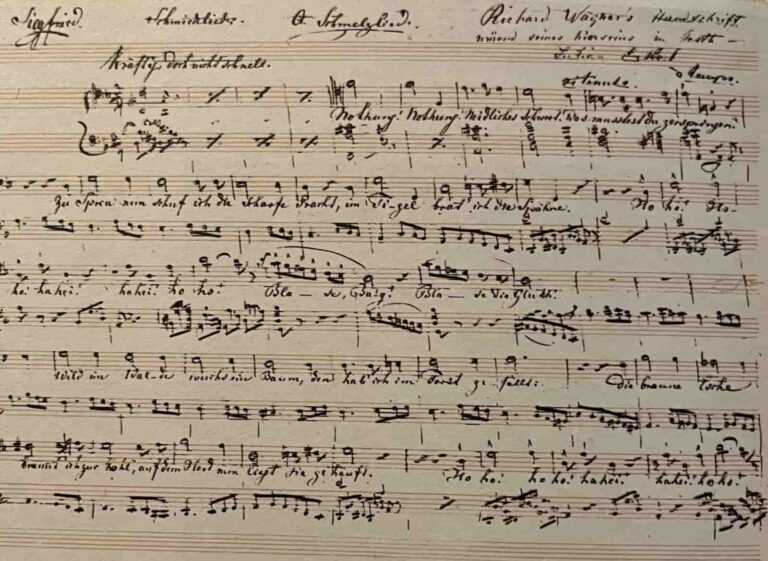 Siegfried. Schmiedelieder. Schmelzlied. Richard Wagner's Handschrift
seines hierseins in
Kräftig doch nicht schnell.
Nothung! Nothung! Neidliches Schwert! Was musstest du zerspringen?
Zu Spreu nun schuf ich die scharfe Pracht, im Tigel brat' ich die Spähne. Ho ho! Ho-
ho! hahei! hahei! ho ho! Bla - se, Balg! Bla - se die Gluth!
Wild im Wal-de wuchs ein Baum, den hab' ich im Forst ge-fällt: Die braune Esche
brannt' ich zur Kohl', auf dem Herd nun liegt sie gehäuft. Ho ho! ho ho! hahei! hahei! ho ho!